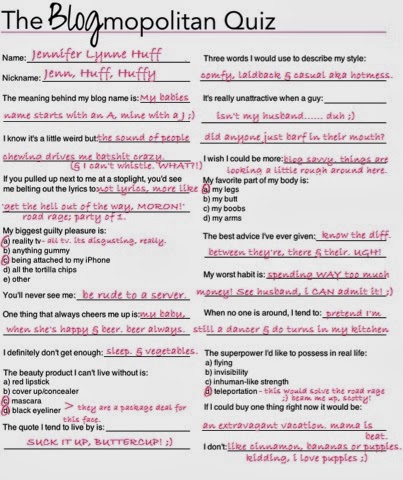 The Blogmopolitan Quiz
Name: Jennifer Lynne Huff
Nickname: Jenn, Huff, Huffy
The meaning behind my blog name is: My babies
name starts with an A, mine with a J ;)
I know it's a little weird but: the sound of people
chewing drives me batshit crazy.
(& I can't whistle. WHAT?!)
If you pulled up next to me at a stoplight, you'd see
me belting out the lyrics to: not lyrics, more like
"get the hell out of the way, MORON!"
road rage; party of 1.
My biggest guilty pleasure is:
a) reality tv - all tv. its disgusting, really.
b) anything gummy
c) being attached to my iPhone
d) all the tortilla chips
e) other
You'll never see me: be rude to a server.
One thing that always cheers me up is: my baby,
when she's happy & beer. beer always.
I definitely don't get enough: sleep. & vegetables.
The beauty product I can't live without is:
a) red lipstick
b) cover up/concealer
c) mascara
d) black eyeliner > they are a package deal for
this face.
The quote I tend to live by is:
SUCK IT UP, BUTTERCUP! ;)
Three words I would use to describe my style:
comfy, laidback & casual aka hotmess.
It's really unattractive when a guy:
isn't my husband...... duh ;)
did anyone just barf in their mouth?
I wish I could be more: blog savvy. things are
looking a little rough around here.
My favorite part of my body is:
a) my legs
b) my butt
c) my boobs
d) my arms
The best advice I've ever given: know the diff.
between they're, there & their. UGH!
My worst habit is: spending WAY too much
money! See husband, i CAN admit it! ;)
When no one is around, I tend to: pretend I'm
still a dancer & do turns in my kitchen
The superpower I'd like to possess in real life:
a) flying
b) invisibility
c) inhuman-like strength
d) teleportation - this would solve the road rage
;) beam me up, scotty!
If I could buy one thing right now it would be:
an extravagant vacation. mama is
beat.
I don't: like cinnamon, bananas or puppies.
kidding, i love puppies ;)